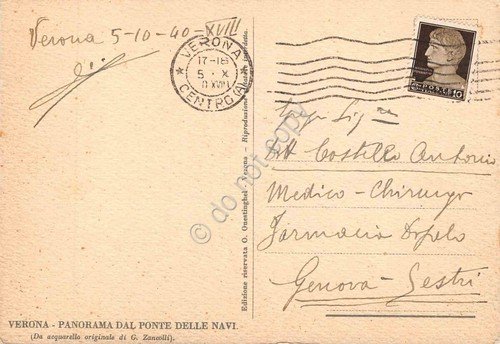 Verona 5-10-40-XVIII
VERONA
17-18
5 · X
CENTRO (A)
POSTE
10
Sig.
Dott Costello Antonio
Medico - Chirurgo
Farmacia
Genova - Sestri
Edizione riservata O. Onestinghel - Verona - Riproduzione vietata
do not copy
VERONA - PANORAMA DAL PONTE DELLE NAVI.
(Da acquarello originale di G. Zancolli).